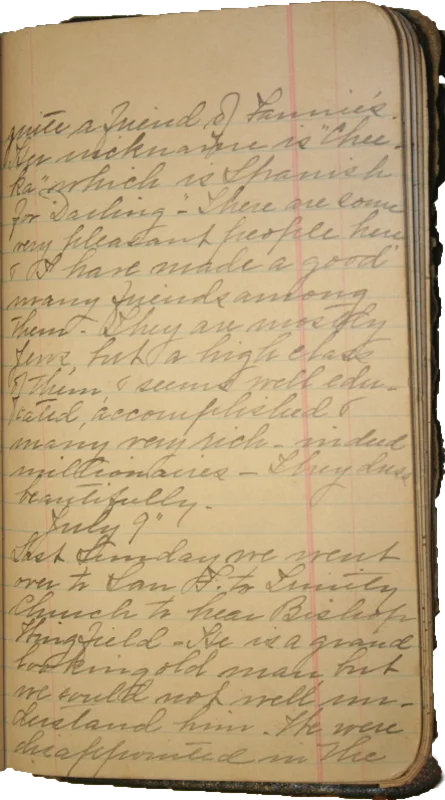 quite a friend of Fannie's.
Her nickname is "Chee-
ka" which is Spanish
for "Darling" - There are some
very pleasant people here
& I have made a good
many friends among
them - They are mostly
Jews, but a high class
of them, & seems well edu-
cated, accomplished &
many very rich - indeed
millionaires - They dress
beautifully.
July 9"
Last Sunday we went
over to San F. to Trinity
Church to hear Bishop
Wingfield - He is a grand
looking old man, but
we could not well un-
derstand him. We were
disappointed in the